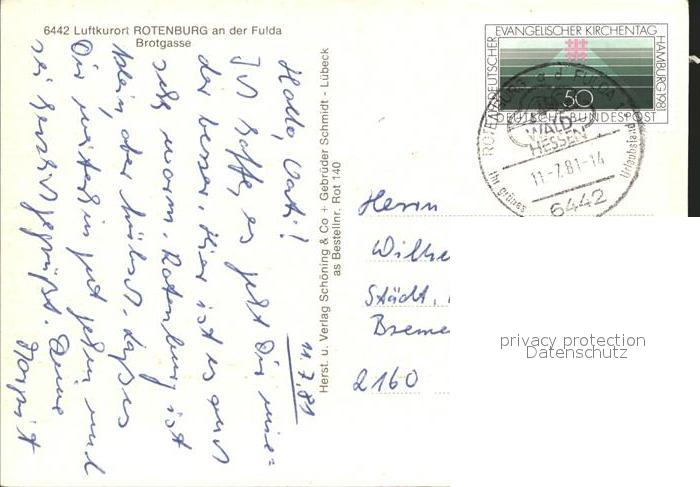 6442 Luftkurort ROTENBURG an der Fulda
Brotgasse
11.7.81
Hallo, Vati!
Ich hoffe es geht Dir wie=
der besser. Hier ist es auch
sehr warm. Rotenburg ist
klein, aber hübsch. Laß es
Dir weiterhin gut gehen und
sei herzlich gegrüßt. Deine
Margrit
Herst. u. Verlag Schöning & Co + Gebrüder Schmidt - Lübeck
as Bestellnr. Rot 140
DEUTSCHER EVANGELISCHER KIRCHENTAG HAMBURG 1981
50
DEUTSCHE BUNDESPOST
ROTENBURG a d FULDA 1
WALD
HESSEN
11-7.81-14
Ihr grünes Urlaubsland
6442
Herrn
Wilhe
Städt.
Breme
2160
privacy protection
Datenschutz